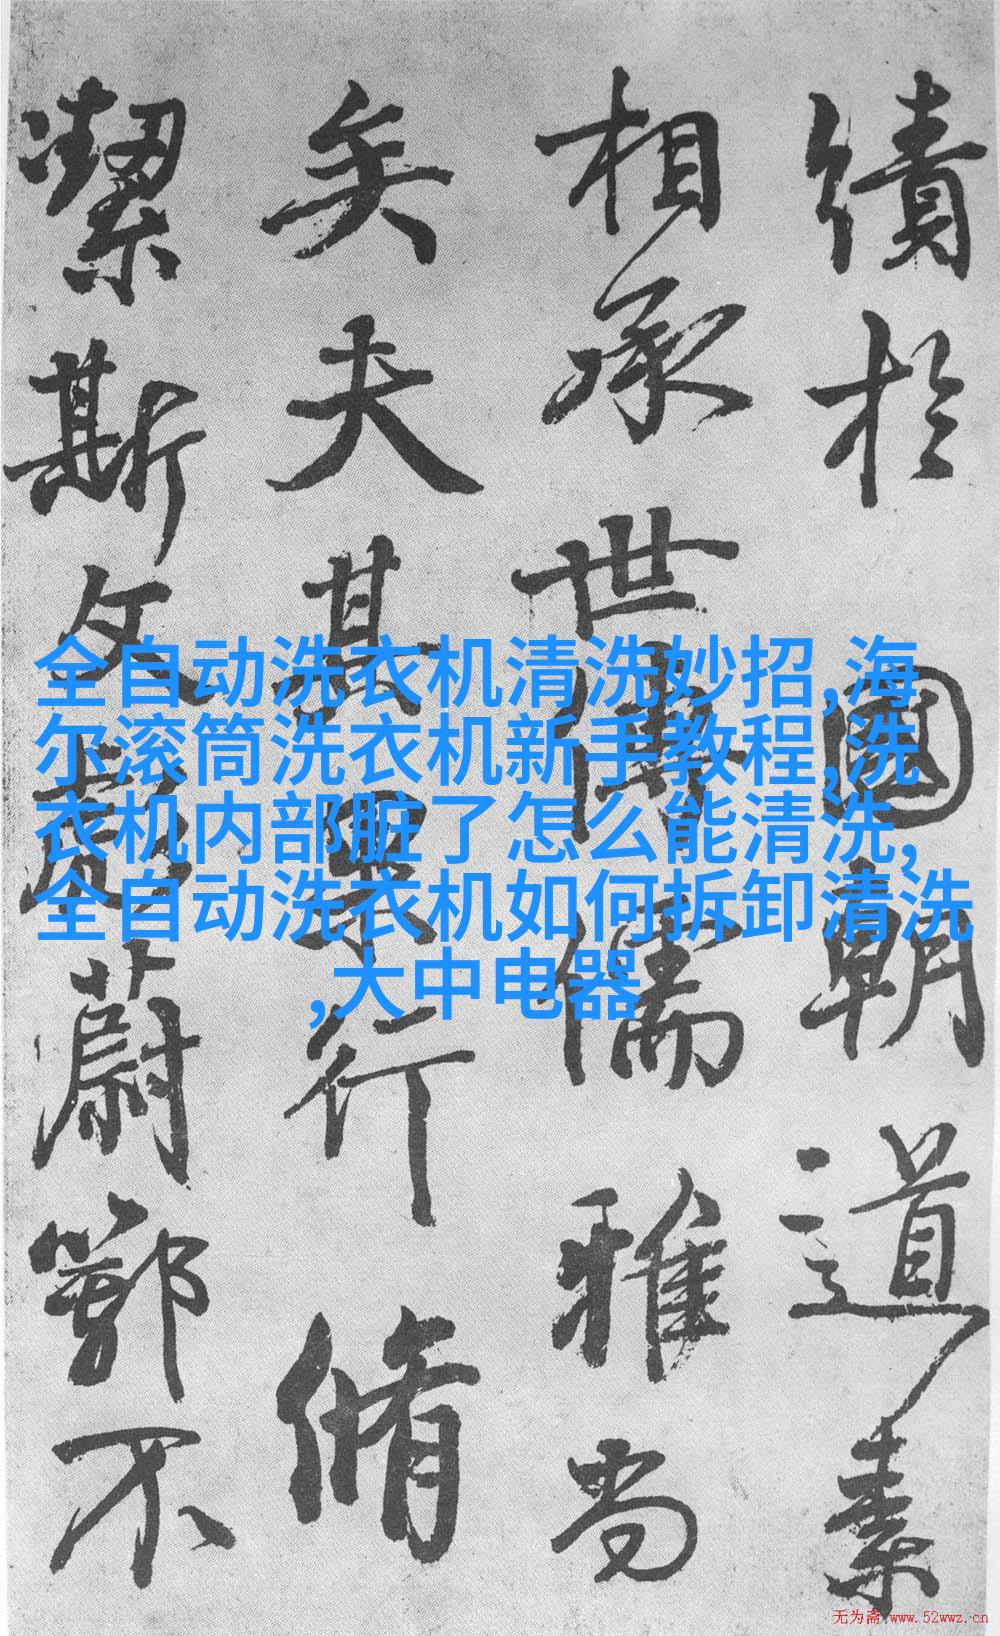 績於國朝道素
相承世傳儒雅尚
矣夫其果行脩
潔斯文彪蔚鄂不
全自动洗衣机清洗妙招,海
尔滚筒洗衣机新手教程,洗
衣机内部脏了怎么能清洗,
全自动洗衣机如何拆卸清洗
,大中电器
无为斋 www.52wwz.cn